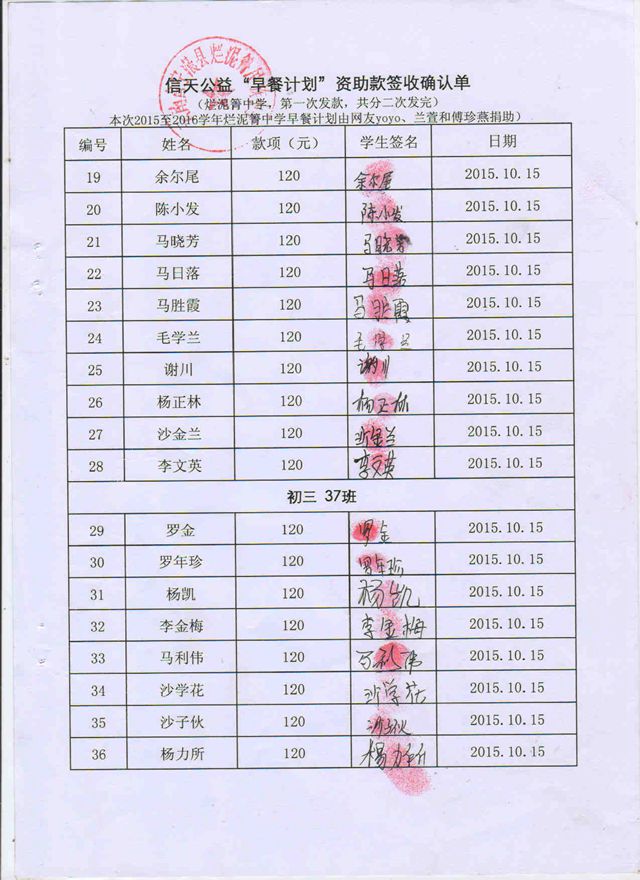 信天公益“早餐计划”资助款签收确认单
（烂泥箐中学，第一次发款，共分二次发完）
本次2015至2016学年烂泥箐中学早餐计划由网友yoyo、兰萱和傅珍燕捐助）
编号 姓名 款项（元） 学生签名 日期
19 余尔尾 120 余尔尾 2015.10.15
20 陈小发 120 陈小发 2015.10.15
21 马晓芳 120 马晓芳 2015.10.15
22 马日落 120 马日落 2015.10.15
23 马胜霞 120 马胜霞 2015.10.15
24 毛学兰 120 毛学兰 2015.10.15
25 谢川 120 谢川 2015.10.15
26 杨正林 120 杨正林 2015.10.15
27 沙金兰 120 沙金兰 2015.10.15
28 李文英 120 李文英 2015.10.15
初三 37班
29 罗金 120 罗金 2015.10.15
30 罗年珍 120 罗年珍 2015.10.15
31 杨凯 120 杨凯 2015.10.15
32 李金梅 120 李金梅 2015.10.15
33 马利伟 120 马利伟 2015.10.15
34 沙学花 120 沙学花 2015.10.15
35 沙子伙 120 沙子伙 2015.10.15
36 杨力所 120 杨力所 2015.10.15